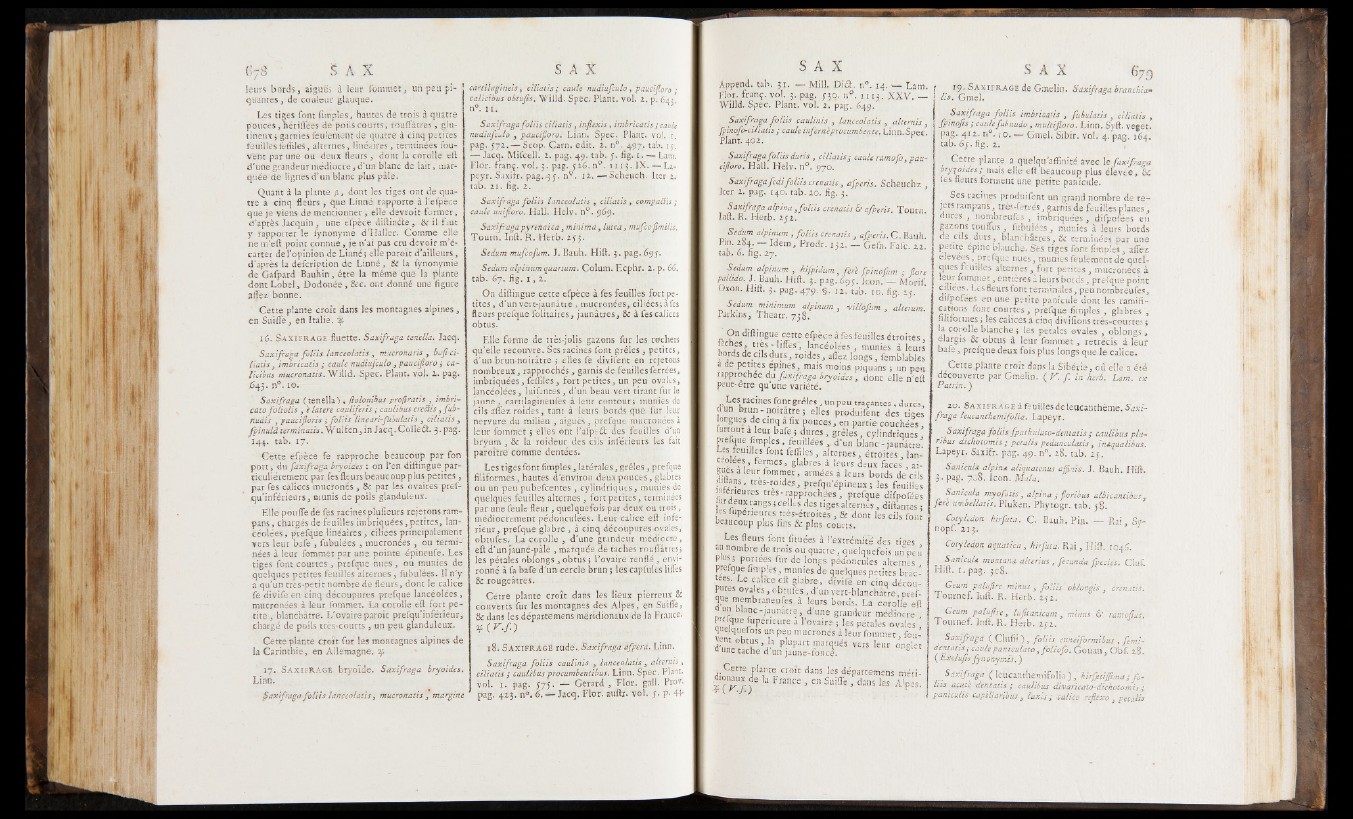 678 S A X
S A X
leurs bords, aiguës à leur sommet, un peu pi-
quantes, de couleur glauque.
Les tiges sont simples, hautes de trois à quatre
pouces, hérissées de poils courts, roussâtres, glu-
tineux; garnies seulement de quatre à cinq petites
feuilles sessiles, alternes, linéaires, terminées sou-
vent par une ou deux fleurs, dont la corolle est
d'une grandeur médiocre, d'un blanc de lait, mar-
quée de lignes d'un blanc plus pâle.
Quant à la plante β, dont les tiges ont de qua-
tre à cinq fleurs, que Linné rapporte à l'espèce
que je viens de mentionner, elle devroit former,
d'après Jacquin, une espèce distincte, & il faut
y rapporter le synonyme d'Haller. Comme elle
ne m'est point connue, je n'ai pas cru devoir m'é-
carter de l'opinion de Linné; elle paroît d'ailleurs,
d'après la description de Linné, & la synonymie
de Gaspard Bauhin, être la même que la plante
dont Lobel, Dodonée, &c. ont donné une figure
assez bonne.
Cette plante croît dans les montagnes alpines,
en Suisse, en Italie. ♃
16. SAXIFRAGE fluette. Saxifraga tenella. Jacq.
Saxifraga foliis lanceolatis, mucronatis, basi ci-
liatis, imbricatis; caule nudiusculo, paucifloro; ca-
licibus mucronatis. Willd. Spec. Plant. vol. 2. pag.
643. n°. 10.
Saxifraga (tenella), stolonibus prostratis, imbri-
cato foliolis, è latere cauliferis; caulibus erectis, sub-
nudis, paucifloris; foliis lineari-subulatis, ciliatis,
spinulâ terminatis. Wulfen, in Jacq. Collect. 3. pag.
144. tab. 17.
Cette espèce se rapproche beaucoup par son
port, du saxifraga bryoides: on l'en distingue par-
ticuliérement par ses fleurs beaucoup plus petites,
par ses calices mucronés, & par les ovaires pres-
qu'inférieurs, munis de poils glanduleux.
Elle pousse de ses racines plusieurs rejetons ram-
pans, chargés de feuilles imbriquées, petites, lan-
céolées, presque linéaires, ciliées principalement
vers leur base, subulées, mucronées, ou termi-
nées à leur sommet par une pointe épineuse. Les
tiges sont courtes, presque nues, ou munies de
quelques petites feuilles alternes, subulées. Il n'y
a qu'un très-petit nombre de fleurs, dont le calice
se divise en cinq découpures presque lancéolées,
mucronées à leur sommet. La corolle est fort pe-
tite, blanchâtre. L'ovaire paroît presqu'inférieur,
chargé de poils très-courts, un peu glanduleux.
Cette plante croît sur les montagnes alpines de
la Carinthie, en Allemagne. ♃
17. SAXIFRAGE bryoïde. Saxifraga bryoides.
Linn.
Saxifraga foliis lanceolatis, mucronatis, margine
cartilagineis, ciliatis; caule nudiusculo, paucifloro;
calicibus obtusis. Willd. Spec. Plant. vol. 2. p. 643.
n°. 11.
Saxifraga foliis ciliatis, inflexis, imbricatis; caule
nudiusculo, paucifloro. Linn. Spec. Plant. vol. 1.
pag. 572. — Scop. Carn. edit. 2. n°. 497. tab. 15.
— Jacq. Miscell. 2. pag. 49. tab. 5. fig. 1. — Lam.
Flor. franç. vol. 3. pag. 526. n°. 1213. IX. — La-
peyr. Saxifr. pag. 95. n°. 12. — Scheuch. Iter 2.
tab. 21. fig. 2.
Saxifraga foliis lanceolatis, ciliatis, compactis;
caule unifloro. Hall. Helv. n°. 969.
Saxifraga pyrenaica, minima, lutea, musco similis.
Tourn. Inst. R. Herb. 253.
Sedum muscosum. J. Bauh. Hist. 3. pag. 695.
Sedum alpinum quartum. Colum. Ecphr. 2. p. 66.
tab. 67. fig. 1, 2.
On distingue cette espèce à ses feuilles fort pe-
tites, d'un vert-jaunâtre, mucronées, ciliées; à ses
fleurs presque solitaires, jaunâtres, & à ses calices
obtus.
Elle forme de très-jolis gazons sur les rochers
qu'elle recouvre. Ses racines sont grêles, petites,
d'un brun-noirâtre; elles se divisent en rejetons
nombreux, rapprochés, garnis de feuilles serrées,
imbriquées, sessiles, fort petites, un peu ovales,
lancéolées, luisantes, d'un beau vert tirant sur le
jaune, cartilagineuses à leur contour; munies de
cils assez roides, tant à leurs bords que sur leur
nervure du milieu, aiguës, presque mucronées à
leur sommet; elles ont l'aspect des feuilles d'un
bryum, & la roideur des cils inférieurs les fait
paroître comme dentées.
Les tiges sont simples, latérales, grêles, presque
filiformes, hautes d'environ deux pouces, glabres
ou un peu pubescentes, cylindriques, munies de
quelques feuilles alternes, fort petites, terminées
par une seule fleur, quelquefois par deux ou trois,
médiocrement pédonculées. Leur calice est infé-
rieur, presque glabre, à cinq découpures ovales,
obtuses. La corolle, d'une grandeur médiocre,
est d'un jaune-pâle, marquée de taches roussâtres;
les pétales oblongs, obtus; l'ovaire renflé, envi-
ronné à sa base d'un cercle brun; les capsules lisses
& rougeâtres.
Cette plante croît dans les lieux pierreux &
couverts sur les montagnes des Alpes, en Suisse,
& dans les départemens méridionaux de la France.
♃ (V. s.)
18. SAXIFRAGE rude. Saxifraga aspera. Linn.
Saxifraga foliis caulinis, lanceolatis, alternis,
ciliatis; caulibus procumbentibus. Linn. Spec. Plant.
vol. 1. pag. 575. — Gerard, Flor. gall. Prov.
pag. 423. n°. 6. — Jacq. Flor. austr. vol. 5. p. 44.
S A X
S A X 679
Append. tab. 31. — Mill. Dict. n°. 14. — Lam.
Flor. franç. vol. 3. pag. 530. n°. 1113. XXV. —
Willd. Spec. Plant. vol. 2. pag. 649.
Saxifraga foliis caulinis, lanceolatis, alternis,
spinoso-ciliatis; caule infernè procumbente. Linn. Spec.
Plant. 402.
Saxifraga foliis duris, ciliatis; caule ramoso, pau-
cifloro. Hall. Helv. n°. 970.
Saxifraga sedi foliis crenatis, asperis. Scheuchz.,
Iter 2. pag. 140. tab. 20. fig. 3.
Saxifraga alpina, foliis crenatis & asperis. Tourn.
Inst. R. Herb. 252.
Sedum alpinum, foliis crenatis, asperis. C. Bauh.
Pin. 284. — Idem, Prodr. 132. — Gesn. Fasc. 22.
tab. 6. fig. 27.
Sedum alpinum, hispidum, ferè spinosum; flore
pallido. J. Bauh. Hist. 3. pag. 695. Icon. — Moris.
Oxon. Hist. 3. pag. 479. §. 12. tab. 10. fig. 25.
Sedum minimum alpinum, villosum, alterum.
Parkins, Theatr. 738.
On distingue cette espèce à ses feuilles étroites,
sèches, très-lisses, lancéolées, munies à leurs
bords de cils durs, roides, assez longs, semblables
à de petites épines, mais moins piquans; un peu
rapprochée du saxifraga bryoides, dont elle n'est
peut-être qu'une variété.
Les racines sont grêles, un peu traçantes, dures,
d'un brun-noirâtre; elles produisent des tiges
longues de cinq à six pouces, en partie couchées,
surtout à leur base; dures, grêles, cylindriques,
presque simples, feuillées, d'un blanc-jaunâtre.
Les feuilles sont sessiles, alternes, étroites, lan-
céolées, fermes, glabres à leurs deux faces, ai-
guës à leur sommet, armées à leurs bords de cils
distans, très-roides, presqu'épineux; les feuilles
inférieures très-rapprochées, presque disposées
sur deux rangs; celles des tiges alternes, distantes;
les supérieures très-étroites, & dont les cils sont
beaucoup plus fins & plus courts.
Les fleurs sont situées à l'extrémité des tiges,
au nombre de trois ou quatre, quelquefois un peu
plus; portées sur de longs pédoncules alternes,
presque simples, munies de quelques petites brac-
tées. Le calice est glabre, divisé en cinq décou-
pures ovales, obtuses, d'un vert-blanchâtre, pres-
que membraneuses à leurs bords. La corolle est
d'un blanc-jaunâtre, d'une grandeur médiocre,
presque supérieure à l'ovaire; les pétales ovales,
quelquefois un peu mucronés à leur sommet, sou-
vent obtus, la plupart marqués vers leur onglet
d'une tache d'un jaune-foncé.
Cette plante croît dans les départemens méri-
dionaux de la France, en Suisse, dans les Alpes.
♃ (V. s.)
19. SAXIFRAGE de Gmelin. Saxifraga branchia-
lis. Gmel.
Saxifraga foliis imbricatis, subulatis, ciliatis,
spinosis; caule subnudo, multifloro. Linn. Syst. veget.
pag. 412. n°. 10. — Gmel. Sibir. vol. 4. pag. 164.
tab. 65. fig. 2.
Cette plante a quelqu'affinité avec le saxifraga
bryzoides; mais elle est beaucoup plus élevée, &
ses fleurs forment une petite panicule.
Ses racines produisent un grand nombre de re-
jets rampans, très-serrés, garnis de feuilles planes,
dures, nombreuses, imbriquées, disposées en
gazons touffus, subulées, munies à leurs bords
de cils durs, blanchâtres, & terminées par une
petite épine blanche. Ses tiges sont simples, assez
élevées, presque nues, munies seulement de quel-
ques feuilles alternes, fort petites, mucronées à
leur sommet, entières à leurs bords, presque point
ciliées. Les fleurs sont terminales, peu nombreuses,
disposées en une petite panicule dont les ramifi-
cations sont courtes, presque simples, glabres,
filiformes; les calices à cinq divisions très-courtes;
la corolle blanche; les pétales ovales, oblongs,
élargis & obtus à leur sommet, rétrécis à leur
base, presque deux fois plus longs que le calice.
Cette plante croît dans la Sibérie, où elle a été
découverte par Gmelin. (V. s. in herb. Lam. ex
Patrin.)
20. SAXIFRAGE à feuilles de leucanthème. Saxi-
fraga leucanthemifolia. Lapeyr.
Saxifraga foliis spathulato-dentatis; caulibus plu-
ribus dichotomis; petalis pedunculatis, inæqualibus.
Lapeyr. Saxifr. pag. 49. n°. 28. tab. 25.
Sanicula alpina aliquatenus affinis. J. Bauh. Hist.
3. pag. 708. Icon. Mala.
Sanicula myosotis, alpina; floribus albicantibus,
ferè umbellatis. Pluken. Phytogr. tab. 58.
Cotyledon hirsuta. C. Bauh. Pin. — Rai, Sy-
nops. 213.
Cotyledon aquatica, hirsuta. Rai, Hist. 1046.
Sanicula montana alterius, secunda species. Clus.
Hist. 1. pag. 308.
Geum palustre minus, foliis oblongis, crenatis.
Tournef. Inst. R. Herb. 252.
Geum palustre, lusitanicum, minus & ramosius.
Tournef. Inst. R. Herb. 252.
Saxifraga (Clusii), foliis cuneiformibus, semi-
dentatis; caule paniculato, folioso. Gouan, Obs. 28.
(Exclusis synonymis.)
Saxifraga (leucanthemifolia), hirsutissima; fo-
liis acutè dentatis; caulibus divaricato-dichotomis;
paniculis capillaribus, laxis; calice reflexo, petalis